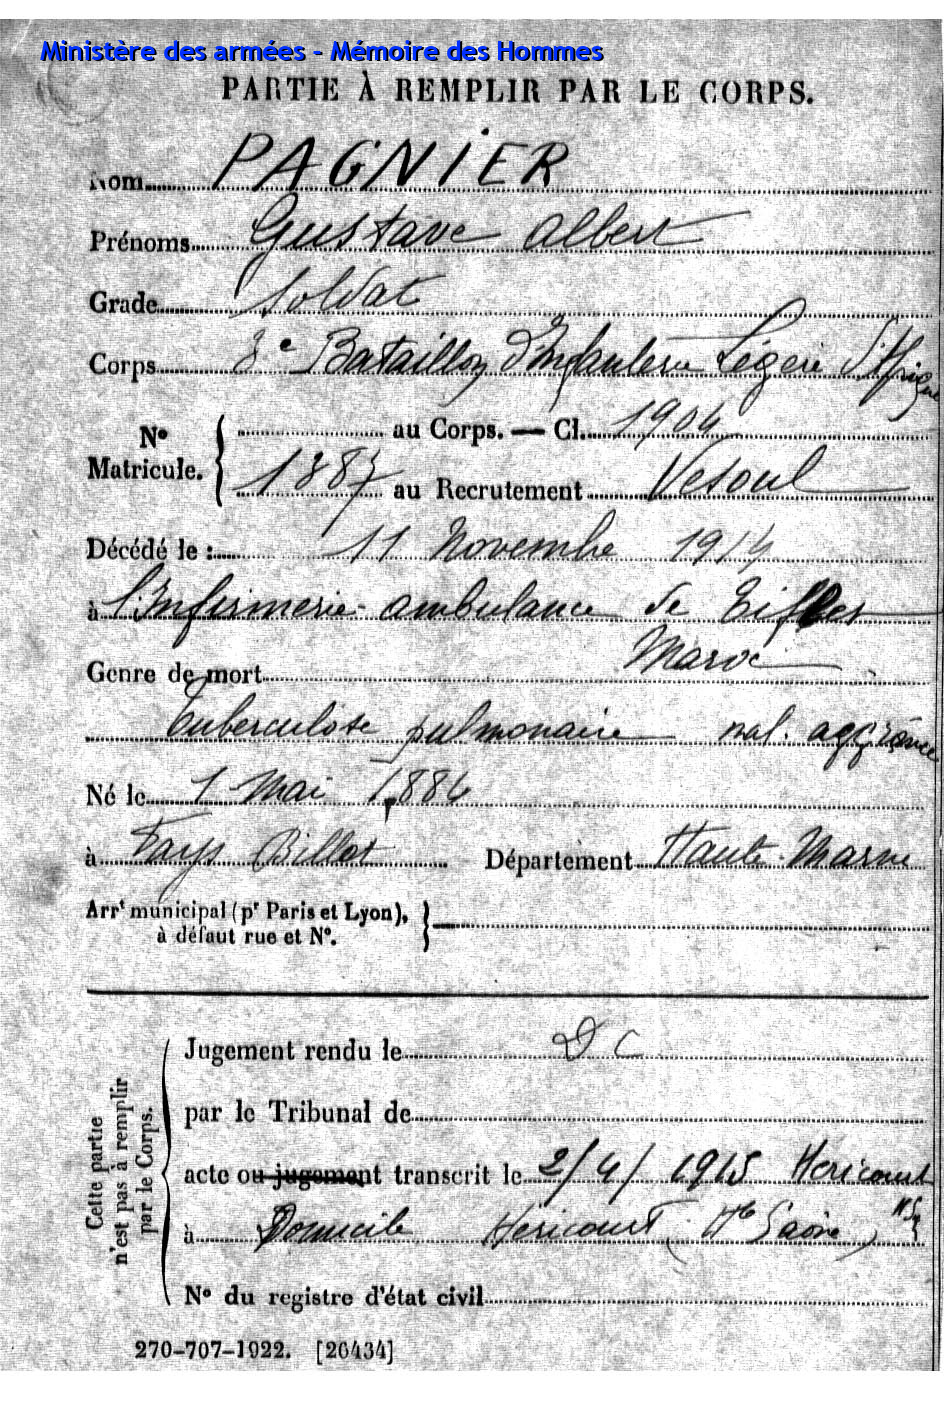 Ministère des armées - Mémoire des Hommes
PARTIE À REMPLIR PAR LE CORPS.
Nom PAGNIER
Prénoms Gustave Albert
Grade Soldat
Corps 3e Bataillon d'Infanterie Légère d'Afrique
N° Matricule. { au Corps. — Cl. 1904
1887 au Recrutement Vesoul
Décédé le : 11 Novembre 1914
à l'Infirmerie-ambulance de
Maroc
Genre de mort
Tuberculose pulmonaire mal. aggravée
Né le 1 Mai 1884
à Fays Billot Département Haute-Marne
Arrt municipal (pr Paris et Lyon),
à défaut rue et N°. }
Cette partie
n'est pas à remplir
par le Corps.
Jugement rendu le DC
par le Tribunal de
acte ou jugement transcrit le 2/4/1915 Hericourt
à Domicile Héricourt (Hte Saône)
N° du registre d'état civil
270-707-1922. [26434]